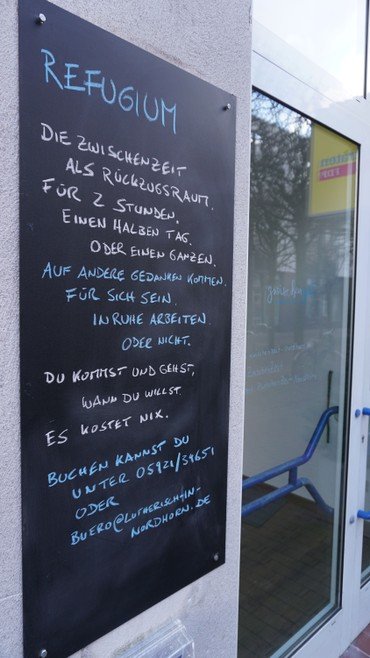 REFUGIUM
DIE ZWISCHENZEIT
ALS RÜCKZUGSRAUM.
FÜR 2 STUNDEN.
EINEN HALBEN TAG.
ODER EINEN GANZEN.
AUF ANDERE GEDANKEN KOMMEN.
FÜR SICH SEIN.
IN RUHE ARBEITEN.
ODER NICHT.
DU KOMMST UND GEHST,
WANN DU WILLST.
ES KOSTET NIX.
BUCHEN KANNST DU
UNTER 05921/34651
ODER
BUERO@LUTHERISCH-IN-
NORDHORN.DE
FDP